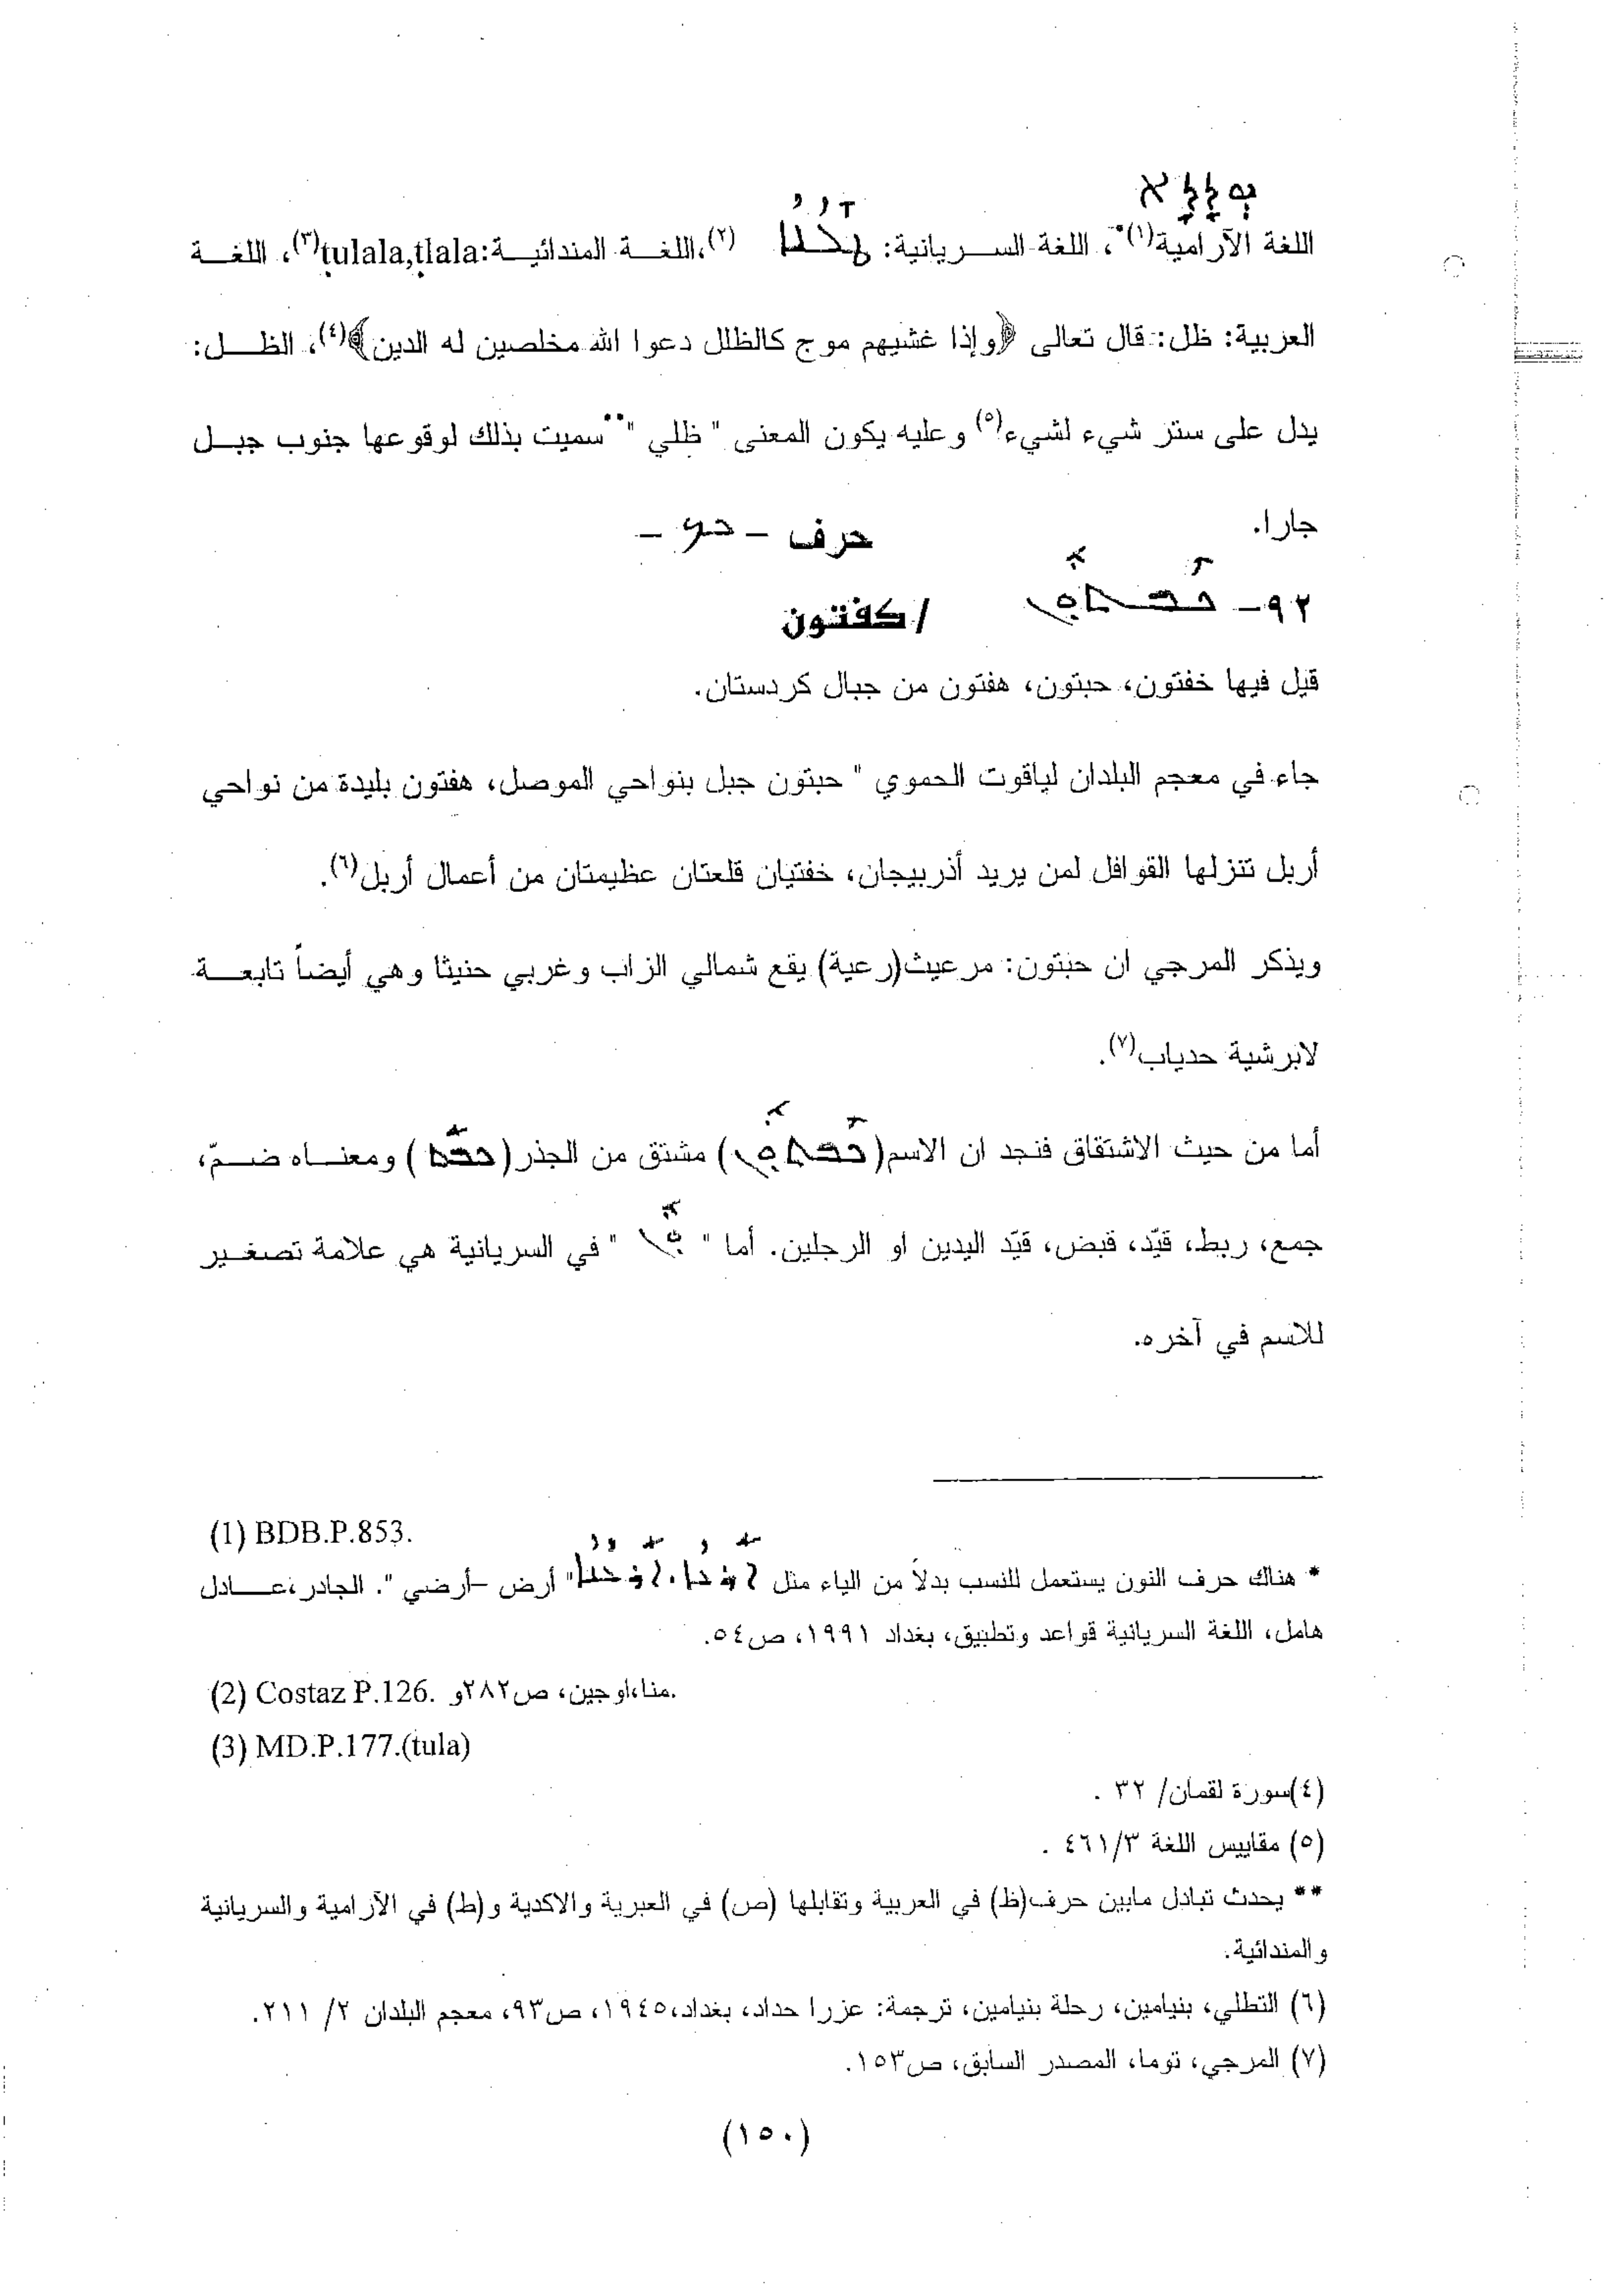 טללא
اللغة الآرامية(١)*، اللغة السريانية: ܛܠܠܐ (٢)،اللغة المندائية:ṭulala,ṭlala(٣)، اللغة
العربية: ظل: قال تعالى ﴿وإذا غشيهم موج كالظلل دعوا الله مخلصين له الدين﴾(٤)، الظل:
يدل على ستر شيء لشيء(٥) وعليه يكون المعنى " ظلي "** سميت بذلك لوقوعها جنوب جبل
جارا.
حرف – ܟܦ –
٩٢– ܟܦܬܘܢ / كفتون
قيل فيها خفتون، حبتون، هفتون من جبال كردستان.
جاء في معجم البلدان لياقوت الحموي " حبتون جبل بنواحي الموصل، هفتون بليدة من نواحي
أربل تنزلها القوافل لمن يريد أذربيجان، خفتيان قلعتان عظيمتان من أعمال أربل(٦).
ويذكر المرجي ان حبتون: مرعيث(رعية) يقع شمالي الزاب وغربي حنيثا وهي أيضاً تابعة
لابرشية حدياب(٧).
أما من حيث الاشتقاق فنجد ان الاسم(ܟܦܬܘܢ) مشتق من الجذر(ܟܦܬ) ومعناه ضمّ،
جمع، ربط، قيّد، قبض، قيّد اليدين او الرجلين. أما " ܘܢ " في السريانية هي علامة تصغير
للاسم في آخره.
(1) BDB.P.853.
* هناك حرف النون يستعمل للنسب بدلاً من الياء مثل "أرض –أرضي ". الجادر،عادل
هامل، اللغة السريانية قواعد وتطبيق، بغداد ١٩٩١، ص٥٤.
(2) Costaz P.126. منا،اوجين، ص٢٨٢و.
(3) MD.P.177.(tula)
(٤)سورة لقمان/ ٣٢ .
(٥) مقاييس اللغة ٤٦١/٣ .
** يحدث تبادل مابين حرف(ظ) في العربية وتقابلها (ص) في العبرية والاكدية و(ط) في الآرامية والسريانية
والمندائية.
(٦) التطلي، بنيامين، رحلة بنيامين، ترجمة: عزرا حداد، بغداد،١٩٤٥، ص٩٣، معجم البلدان ٢/ ٢١١.
(٧) المرجي، توما، المصدر السابق، ص١٥٣.
(١٥٠)